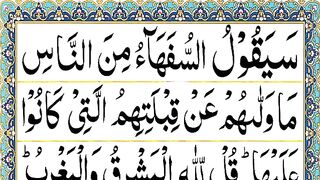 سَيَقُوْلُ السُّفَهَآءُ مِنَ النَّاسِ
مَا وَلّٰىهُمْ عَنْ قِبْلَتِهِمُ الَّتِیْ كَانُوْا
عَلَيْهَا ؕ قُلْ لِّلّٰهِ الْمَشْرِقُ وَالْمَغْرِبُ ؕ